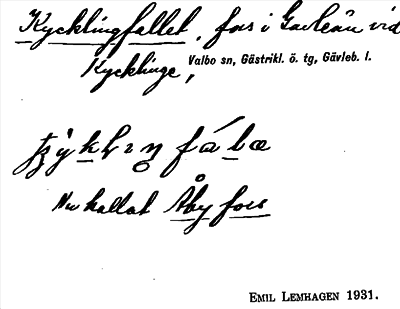 Kycklingfallet, fors i Gavleån vid
Kycklinge, Valbo sn, Gästrikl. ö. tg, Gävleb. l.
Nu kallat Åbyfors
EMIL LEMHAGEN 1931.